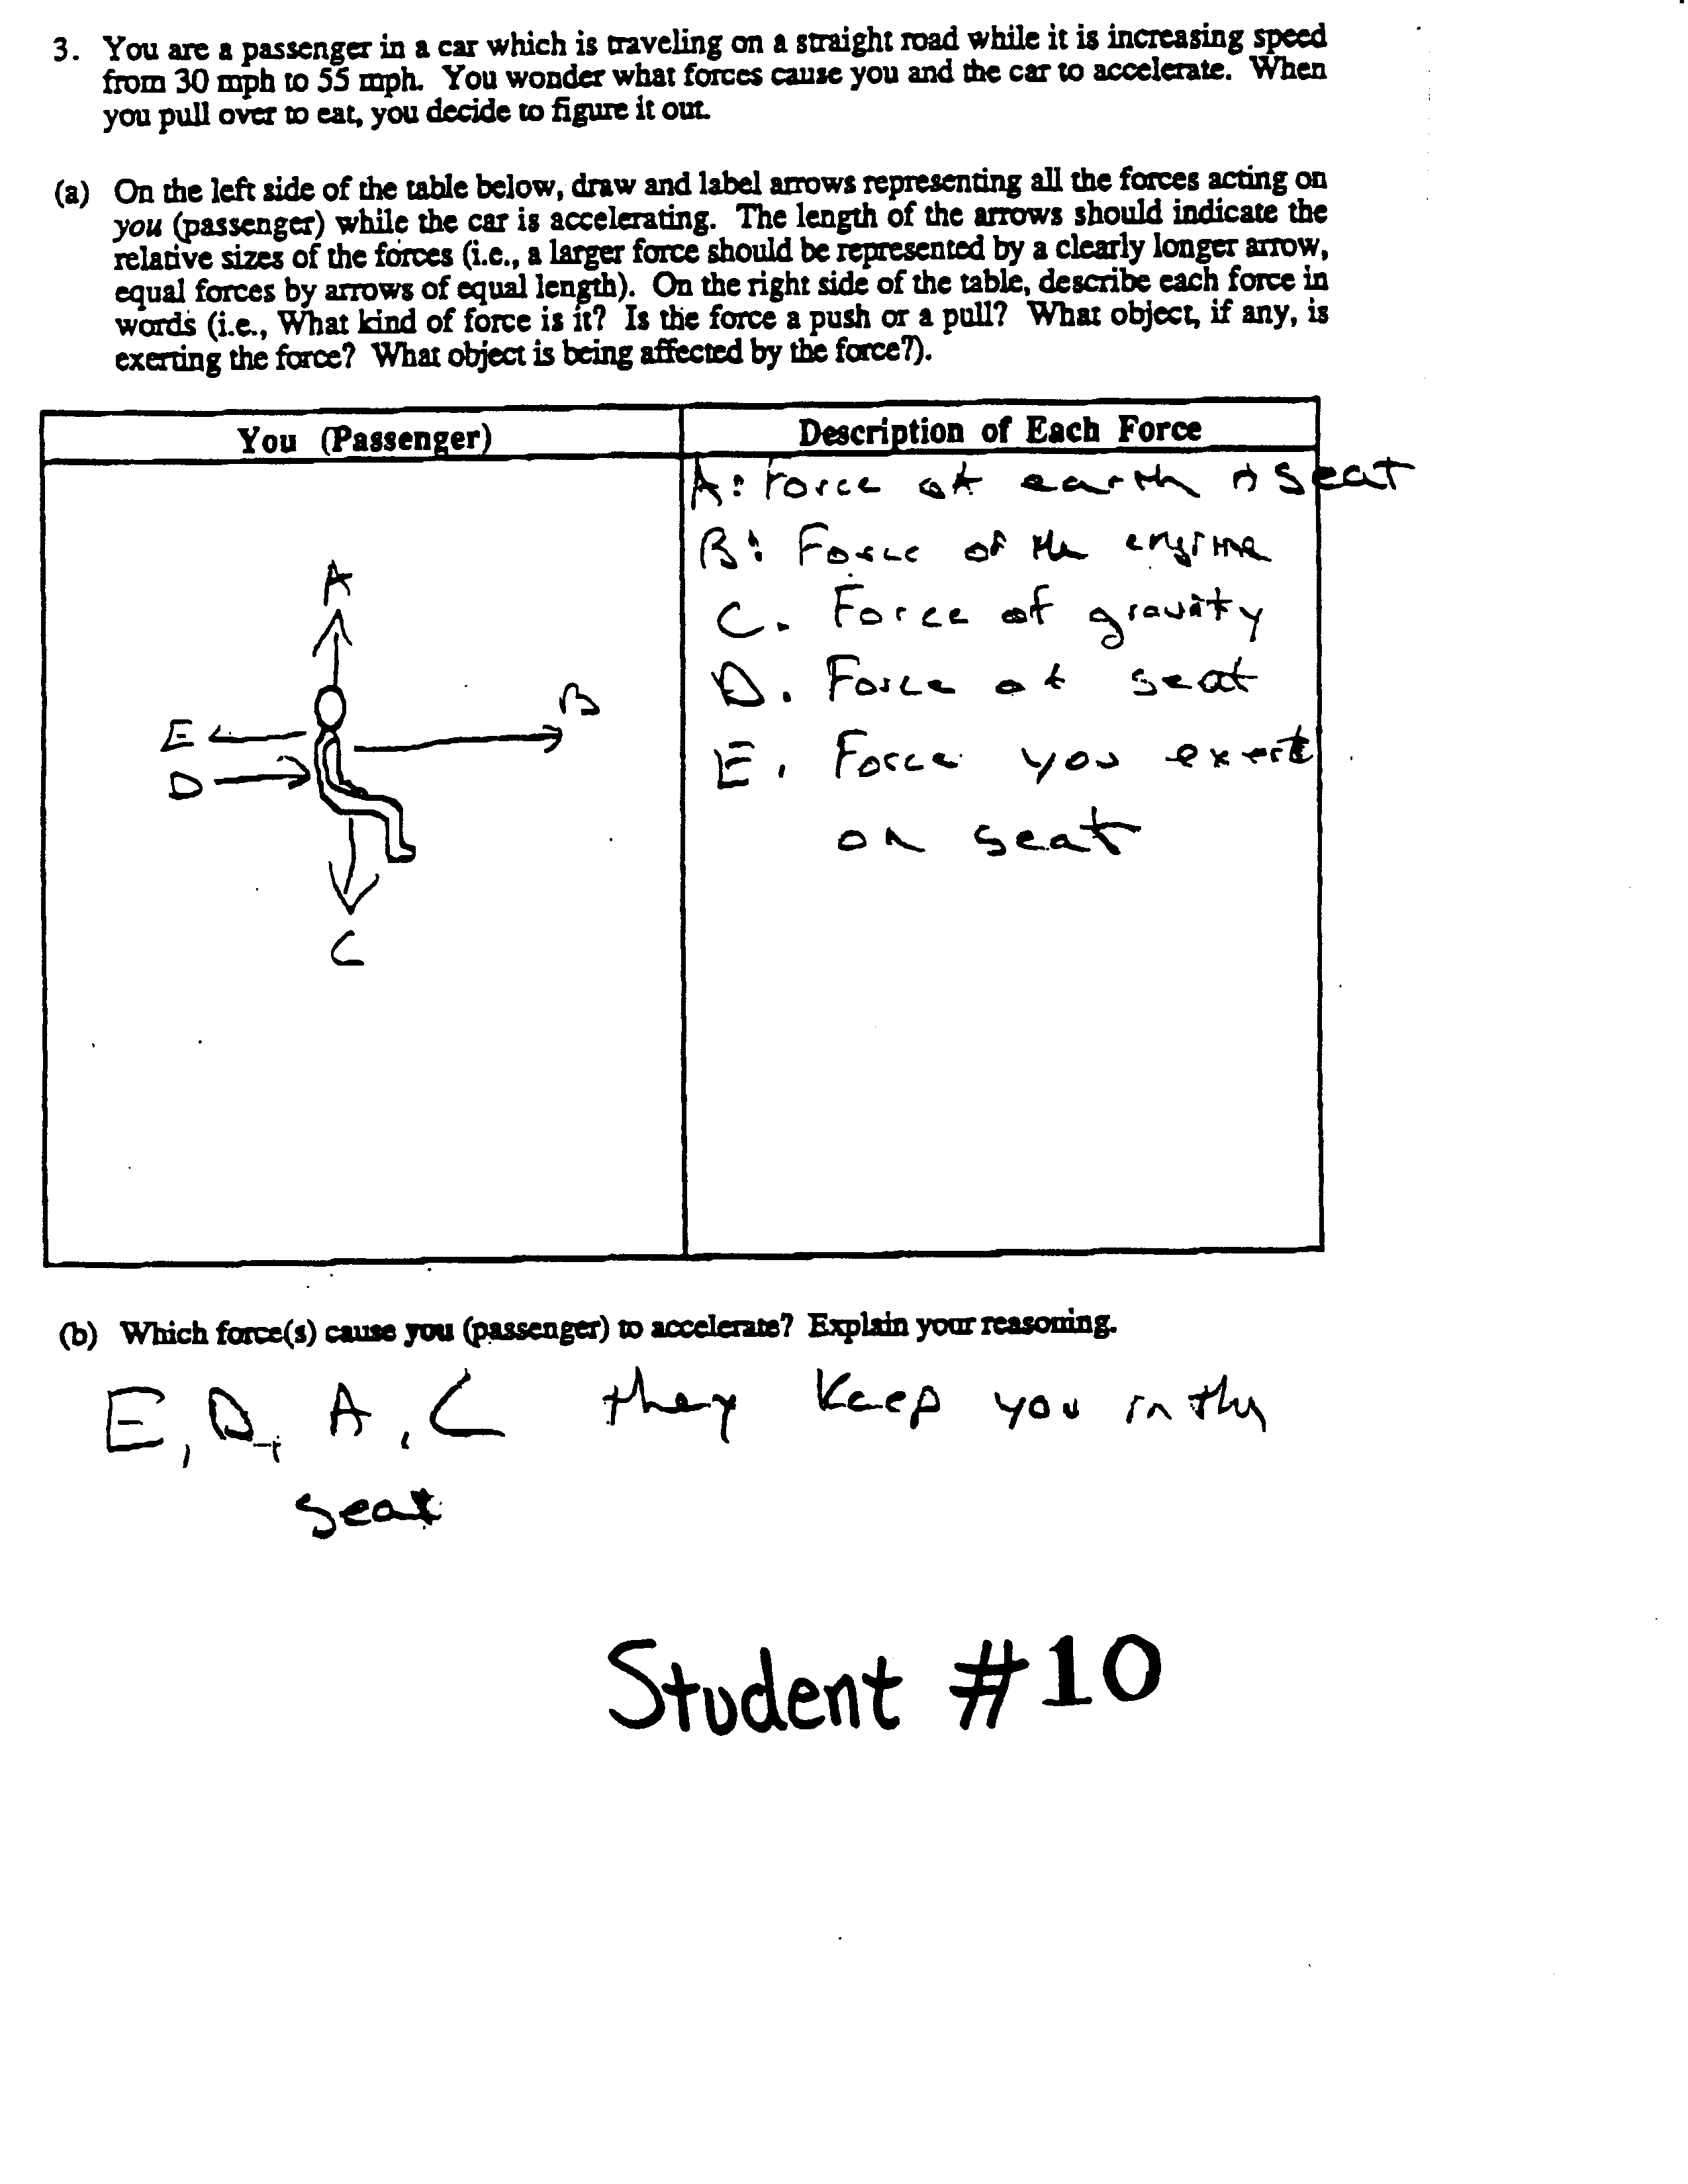 3. You are a passenger in a car which is traveling on a straight road while it is increasing speed
from 30 mph to 55 mph. You wonder what forces cause you and the car to accelerate. When
you pull over to eat, you decide to figure it out.
(a) On the left side of the table below, draw and label arrows representing all the forces acting on
you (passenger) while the car is accelerating. The length of the arrows should indicate the
relative sizes of the forces (i.e., a larger force should be represented by a clearly longer arrow,
equal forces by arrows of equal length). On the right side of the table, describe each force in
words (i.e., What kind of force is it? Is the force a push or a pull? What object, if any, is
exerting the force? What object is being affected by the force?).
You (Passenger)
A
B
E
D
C
Description of Each Force
A: Force of earth seat
B: Force of the engine
C. Force of gravity
D. Force of seat
E. Force you exert
on seat
(b) Which force(s) cause you (passenger) to accelerate? Explain your reasoning.
E, D, A, C they keep you in the
seat
Student #10